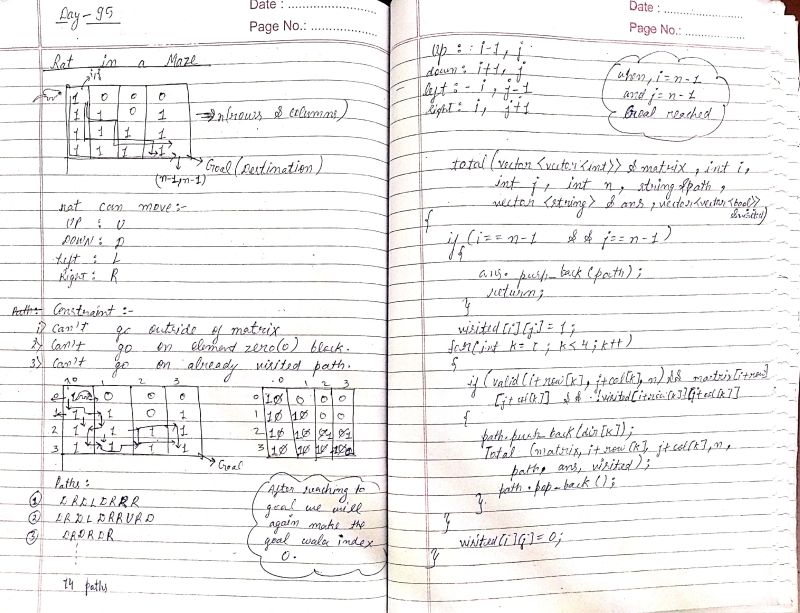 Date :
Page No.:
Day - 95
Rat in a Maze
1 0 0 0
1 1 0 1
1 1 1 1
1 1 1 1
⇒ n(rows & columns)
Goal (Destination)
(n-1, n-1)
rat can move :-
UP : U
DOWN : D
Left : L
Right : R
Constraint :-
1) Can't go outside of matrix
2) Can't go on element zero(0) block.
3) Can't go on already visited path.
0 1 2 3
0 1 0 0 0
1 1 1 0 1
2 1 1 1 1
3 1 1 1 1
Goal
0 1 2 3
0 10 0 0 0
1 10 10 0 0
2 10 10
3 10 10 10
Paths :
① DRDLDRRR
② DRDLDRRURD
③ DRDRDR
14 paths
After reaching to
goal we will
again make the
goal wala index
0.
Date :
Page No.:
Up : i-1, j
down : i+1, j
left :- i, j-1
Right : i, j+1
when, i = n-1
and j = n-1
Goal reached
total (vector <vector <int>> & matrix, int i,
int j, int n, string & path,
vector <string> & ans, vector<vector<bool>>
& visited)
{
if (i == n-1 && j == n-1)
{
ans. push_back (path);
return;
}
visited [i][j] = 1;
for (int k = 0; k < 4; k++)
{
if (valid (i + row [k], j + col[k], n) && matrix[i+row
[j + col[k]] && !visited[i+row[k]][j+col[k]]
{
path. push_back (dir[k]);
Total (matrix, i + row [k], j + col[k], n,
path, ans, visited);
path . pop_back ();
}
}
visited [i][j] = 0;
}